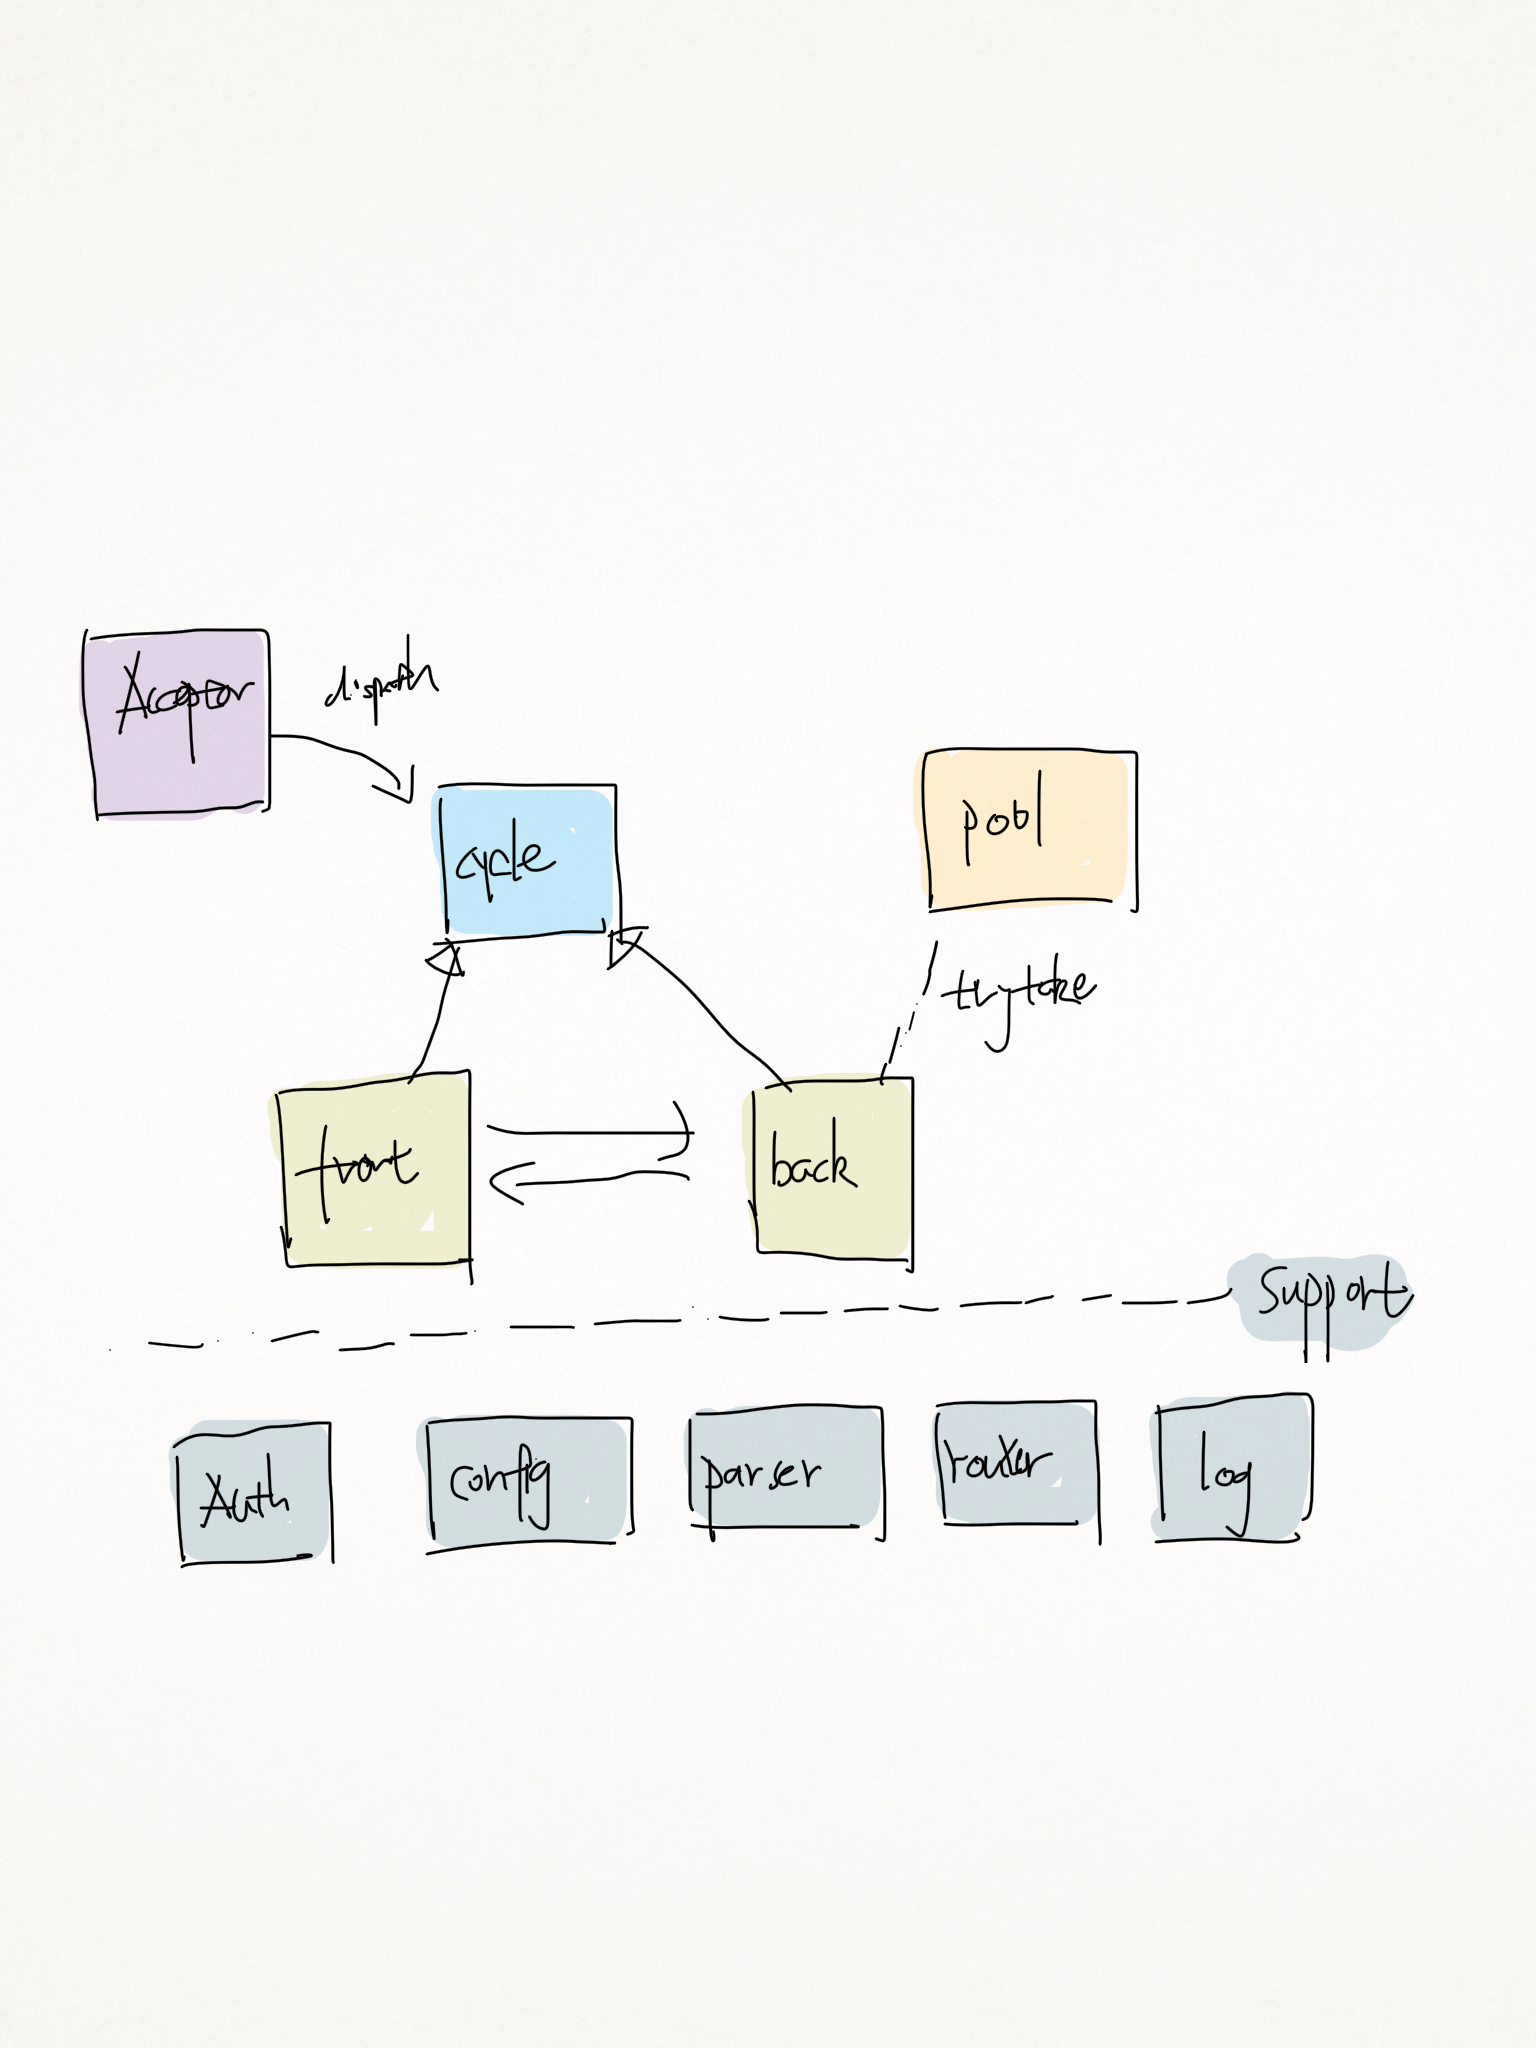 Acceptor
dispatch
cycle
pool
try take
front
back
support
Auth
config
parser
router
log